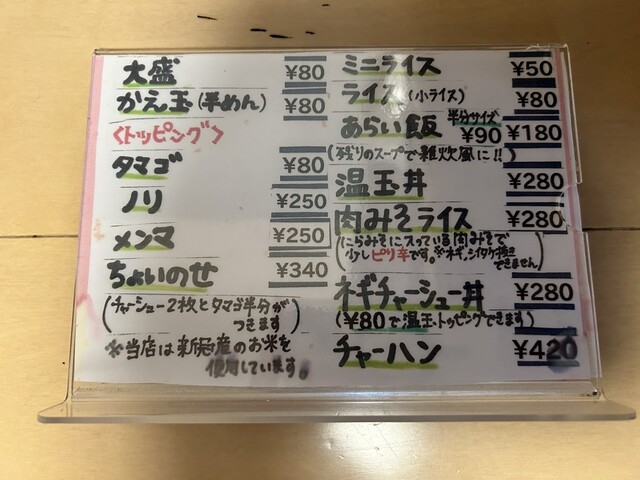 大盛 ¥80
かえ玉(半めん) ¥80
〈トッピング〉
タマゴ ¥80
ノリ ¥250
メンマ ¥250
ちょいのせ ¥340
(チャーシュー2枚とタマゴ半分が
つきます)
※当店は新潟産のお米を
使用しています。
ミニライス ¥50
ライス(小ライス) ¥80
あらい飯 半分サイズ ¥90 ¥180
(残りのスープで雑炊風に!!)
温玉丼 ¥280
肉みそライス ¥280
(にらみそに入っている肉みそで
少しピリ辛です。※ネギ、シイタケ抜き
できません)
ネギチャーシュー丼 ¥280
(¥80で温玉トッピングできます)
チャーハン ¥420